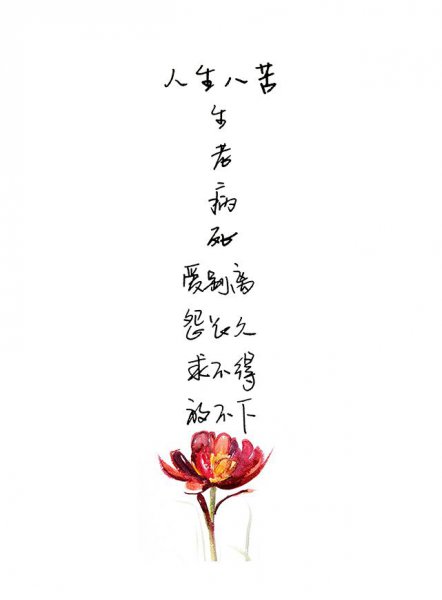 人生八苦
生
老
病
死
爱别离
怨长久
求不得
放不下